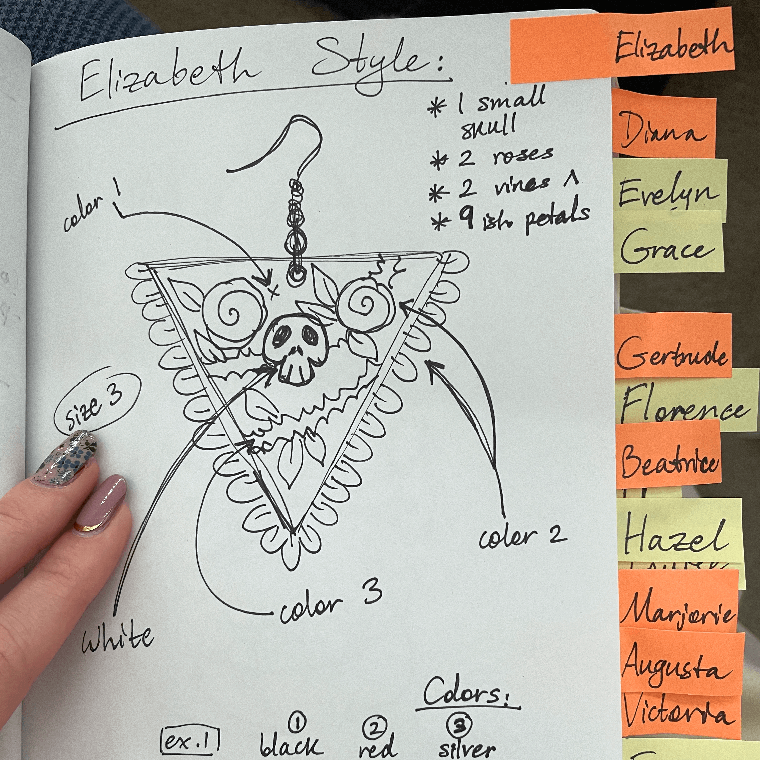 Elizabeth Style:
* 1 small
skull
* 2 roses
* 2 vines ^
* 9 ish petals
color 1
size 3
color 2
color 3
white
Colors:
① ② ③
ex.1 black red silver
Elizabeth
Diana
Evelyn
Grace
Gertrude
Florence
Beatrice
Hazel
Marjorie
Augusta
Victoria